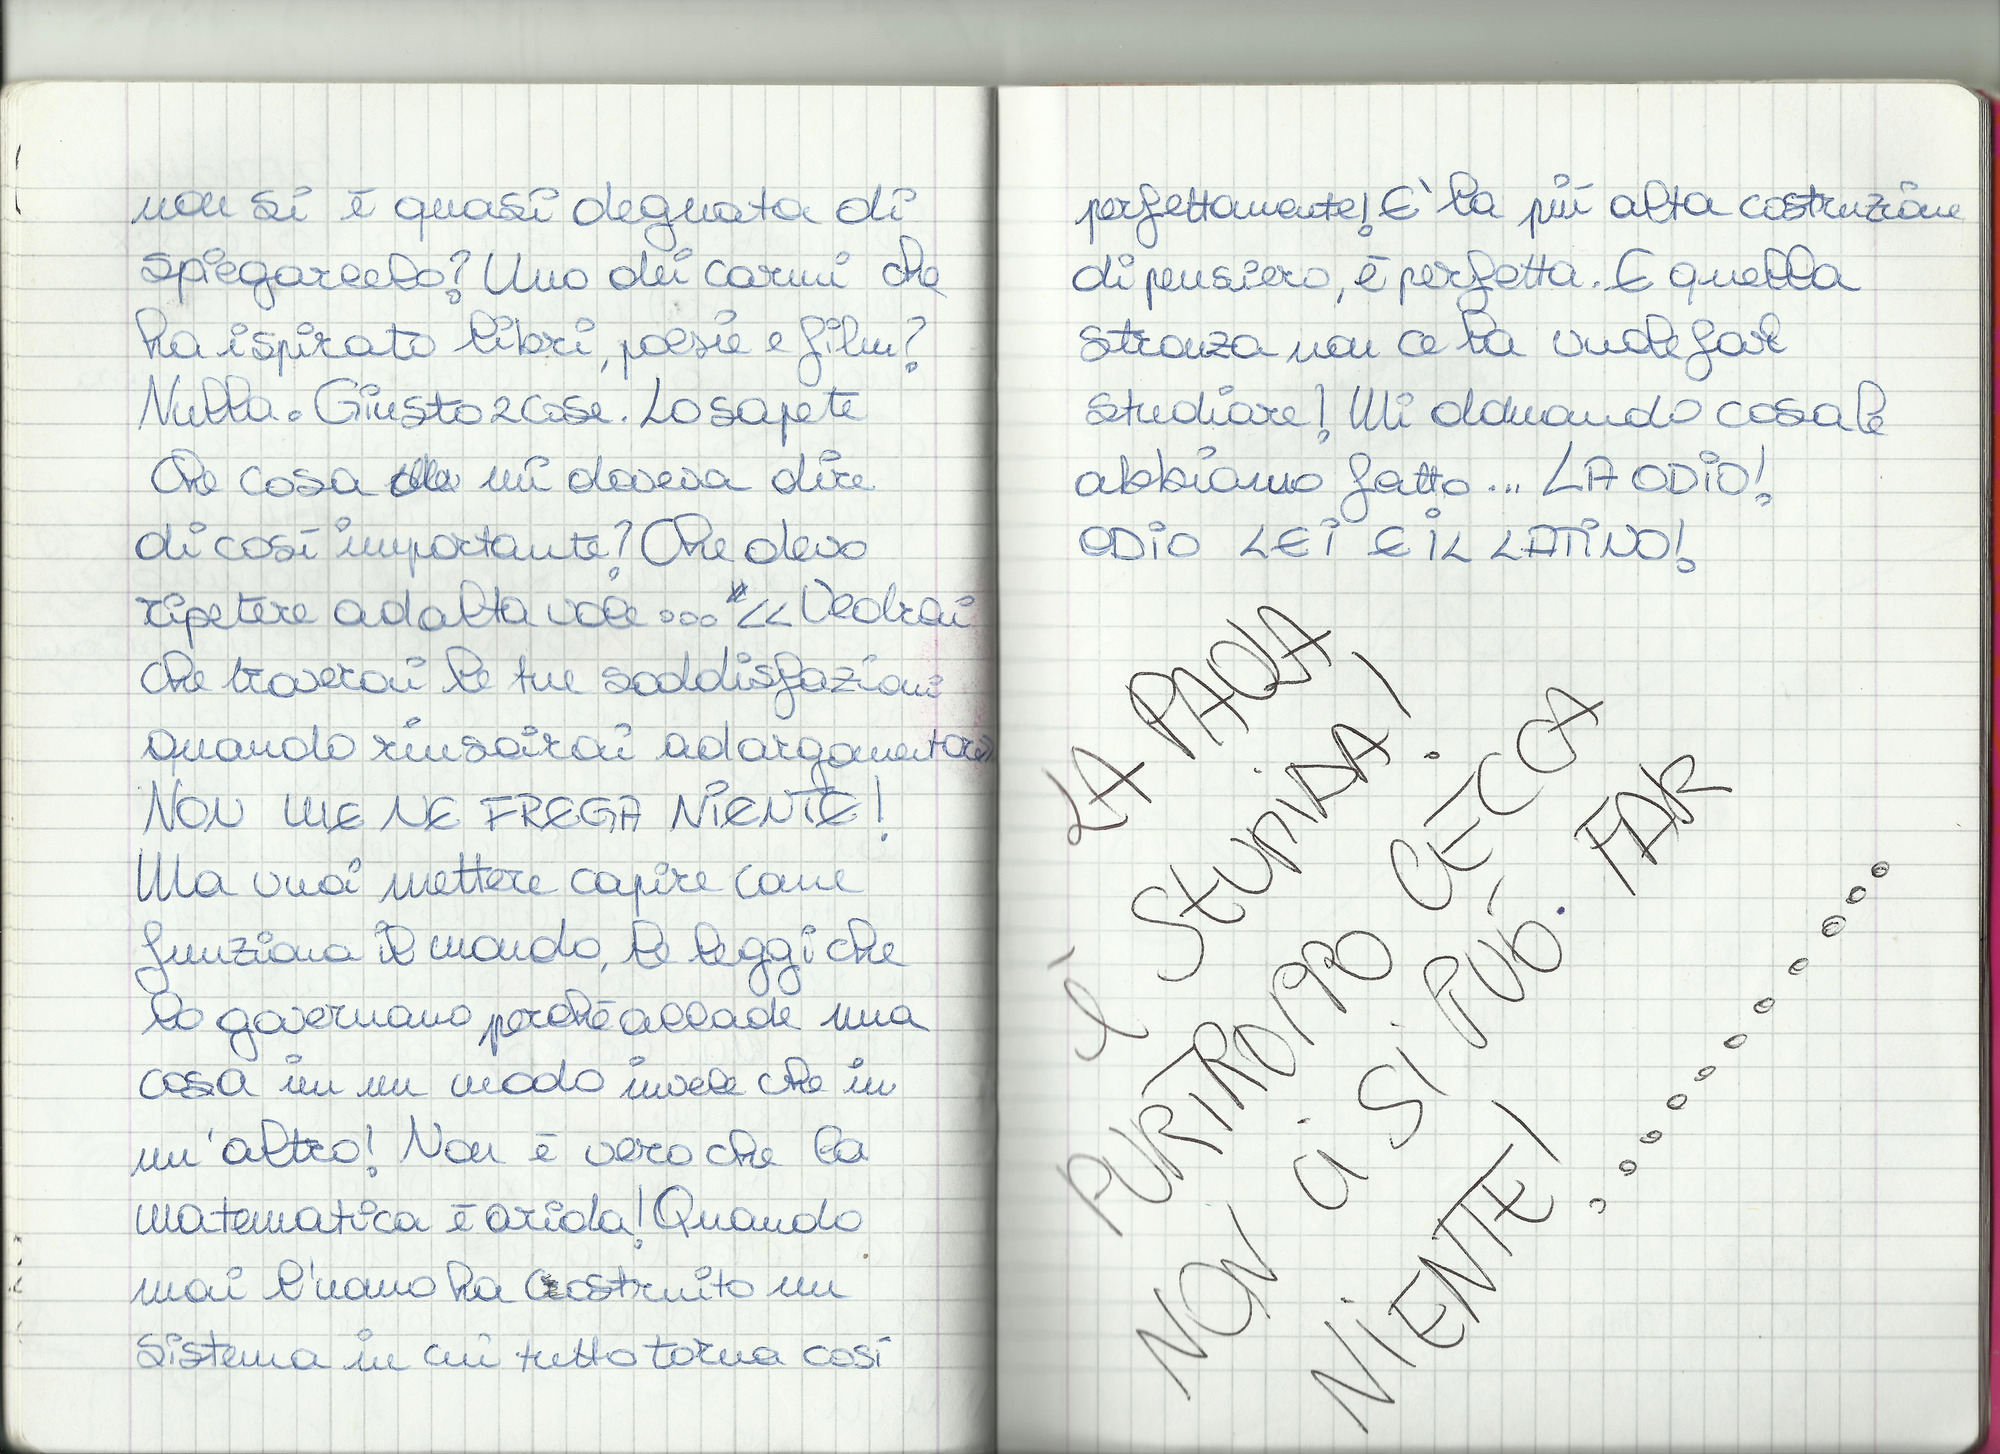 non si è quasi degnata di
spiegarcelo? Uno dei carmi che
ha ispirato libri, poesie e film?
Nulla. Giusto 2 cose. Lo sapete
che cosa mi doveva dire
di così importante? Che devo
ripetere ad alta voce... << Vedrai
che troverai le tue soddisfazioni
quando riuscirai ad argomentare>>
NON ME NE FREGA NIENTE!
Ma vuoi mettere capire come
funziona il mondo, le leggi che
lo governano perché accade una
cosa in un modo invece che in
un'altro! Non è vero che la
matematica è arida! Quando
mai l'uomo ha costruito un
sistema in cui tutto torna così
perfettamente! E' la più alta costruzione
di pensiero, è perfetta. E quella
stronza non ce la vuole far
studiare! Mi domando cosa le
abbiamo fatto... LA ODIO!
ODIO LEI E IL LATINO!
LA PAOLA
è STUPIDA!
PURTROPPO CECCA
NON CI SI PUÒ FAR
NIENTE!